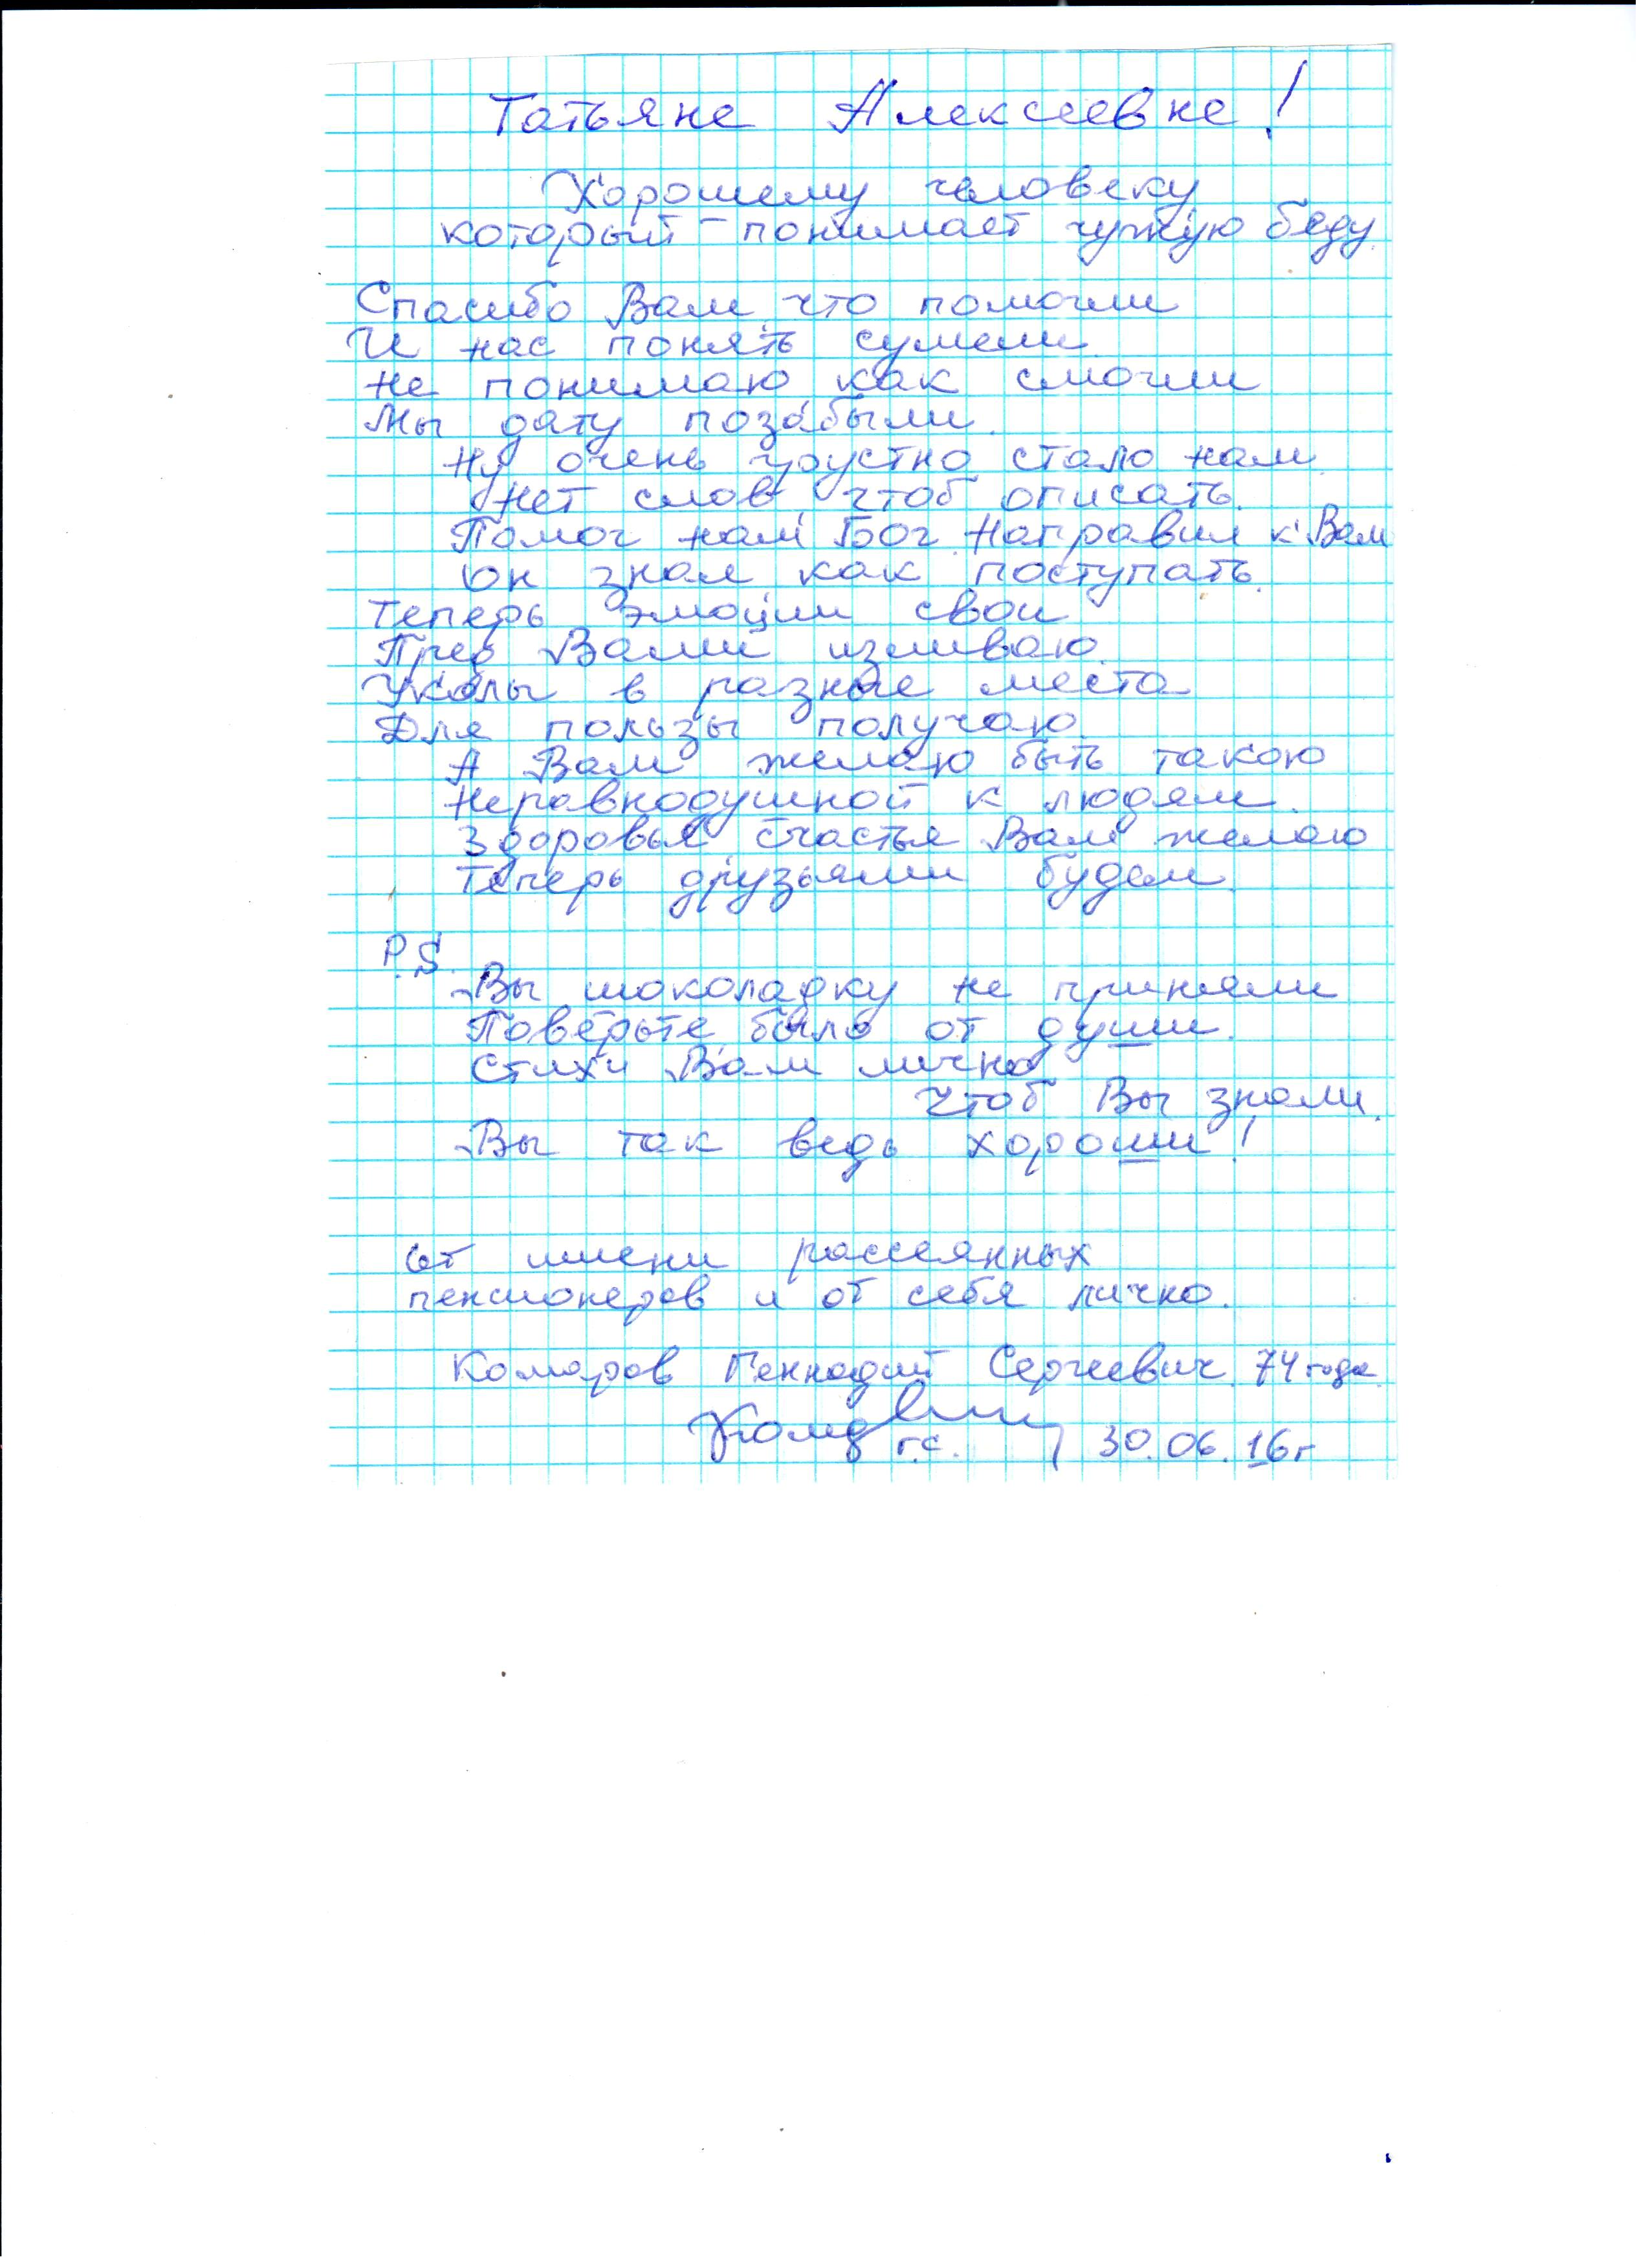 Татьяне Алексеевне!
Хорошему человеку
который - понимает чужую беду.
Спасибо Вам, что помогли
И нас понять сумели.
Не понимаю как смогли
Мы дату позабыли.
Ну очень грустно стало нам
Нет слов, чтоб описать.
Помог нам Бог. Направил к Вам
Он знал как поступать.
Теперь эмоции свои
Пред Вами изливаю.
Уколы в разные места
Для пользы получаю.
А Вам желаю быть такою
Неравнодушной к людям.
Здоровья счастья Вам желаю
Теперь друзьями будем.
P.S.
Вы шоколадку не приняли
Поверьте было от души.
Стихи Вам лично
Чтоб Вы знали.
Вы так ведь хороши!
От имени рассеянных
пенсионеров и от себя лично.
Комаров Геннадий Сергеевич. 74 года.
г.с. 30.06.16г